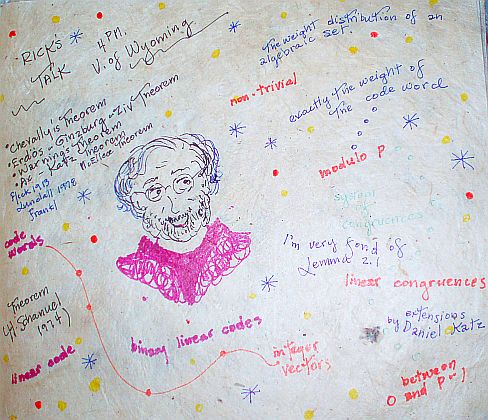 RICK'S
TALK
4 PM.
U. of Wyoming
• Chevally's Theorem
• Erdös - Ginzburg - Ziv Theorem
• Warning's Theorem
• Ax - Katz Theorem
McEliece Theorem
1978
Frankl
The weight distribution of an
algebraic set.
non-trivial
exactly the weight of
The code word
modulo p
system
of
congruences
I'm very fond of
Lemma 2.1
linear congruences
by extensions
Daniel Katz
code
words
Theorem
Schanuel
1974)
linear code
binary linear codes
integer
vectors
between
0 and p-1